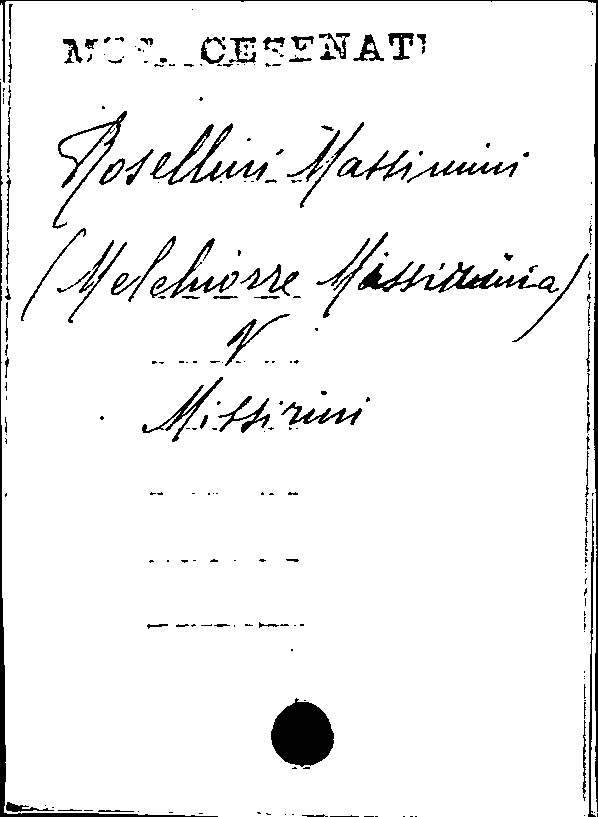 MSS. CESENATI
Rosellini Massimini
(Melchiorre Missirinia)
V
Missirini